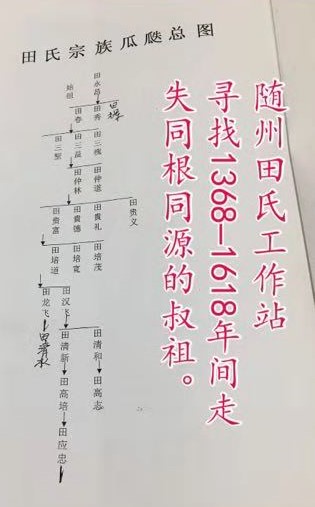 田氏宗族瓜瓞总图
随州田氏工作站
寻找1368-1618年间走
失同根同源的叔祖。
始祖
田永昌
田春 田秀
田三聚 田三益 田三槐
田仲林 田仲道
田贵富 田貴德 田貴礼 田贵义
田培道 田培寬 田培茂
田龙飞 田汉飞
田清新 田清和
田高培 田高志
田应忠